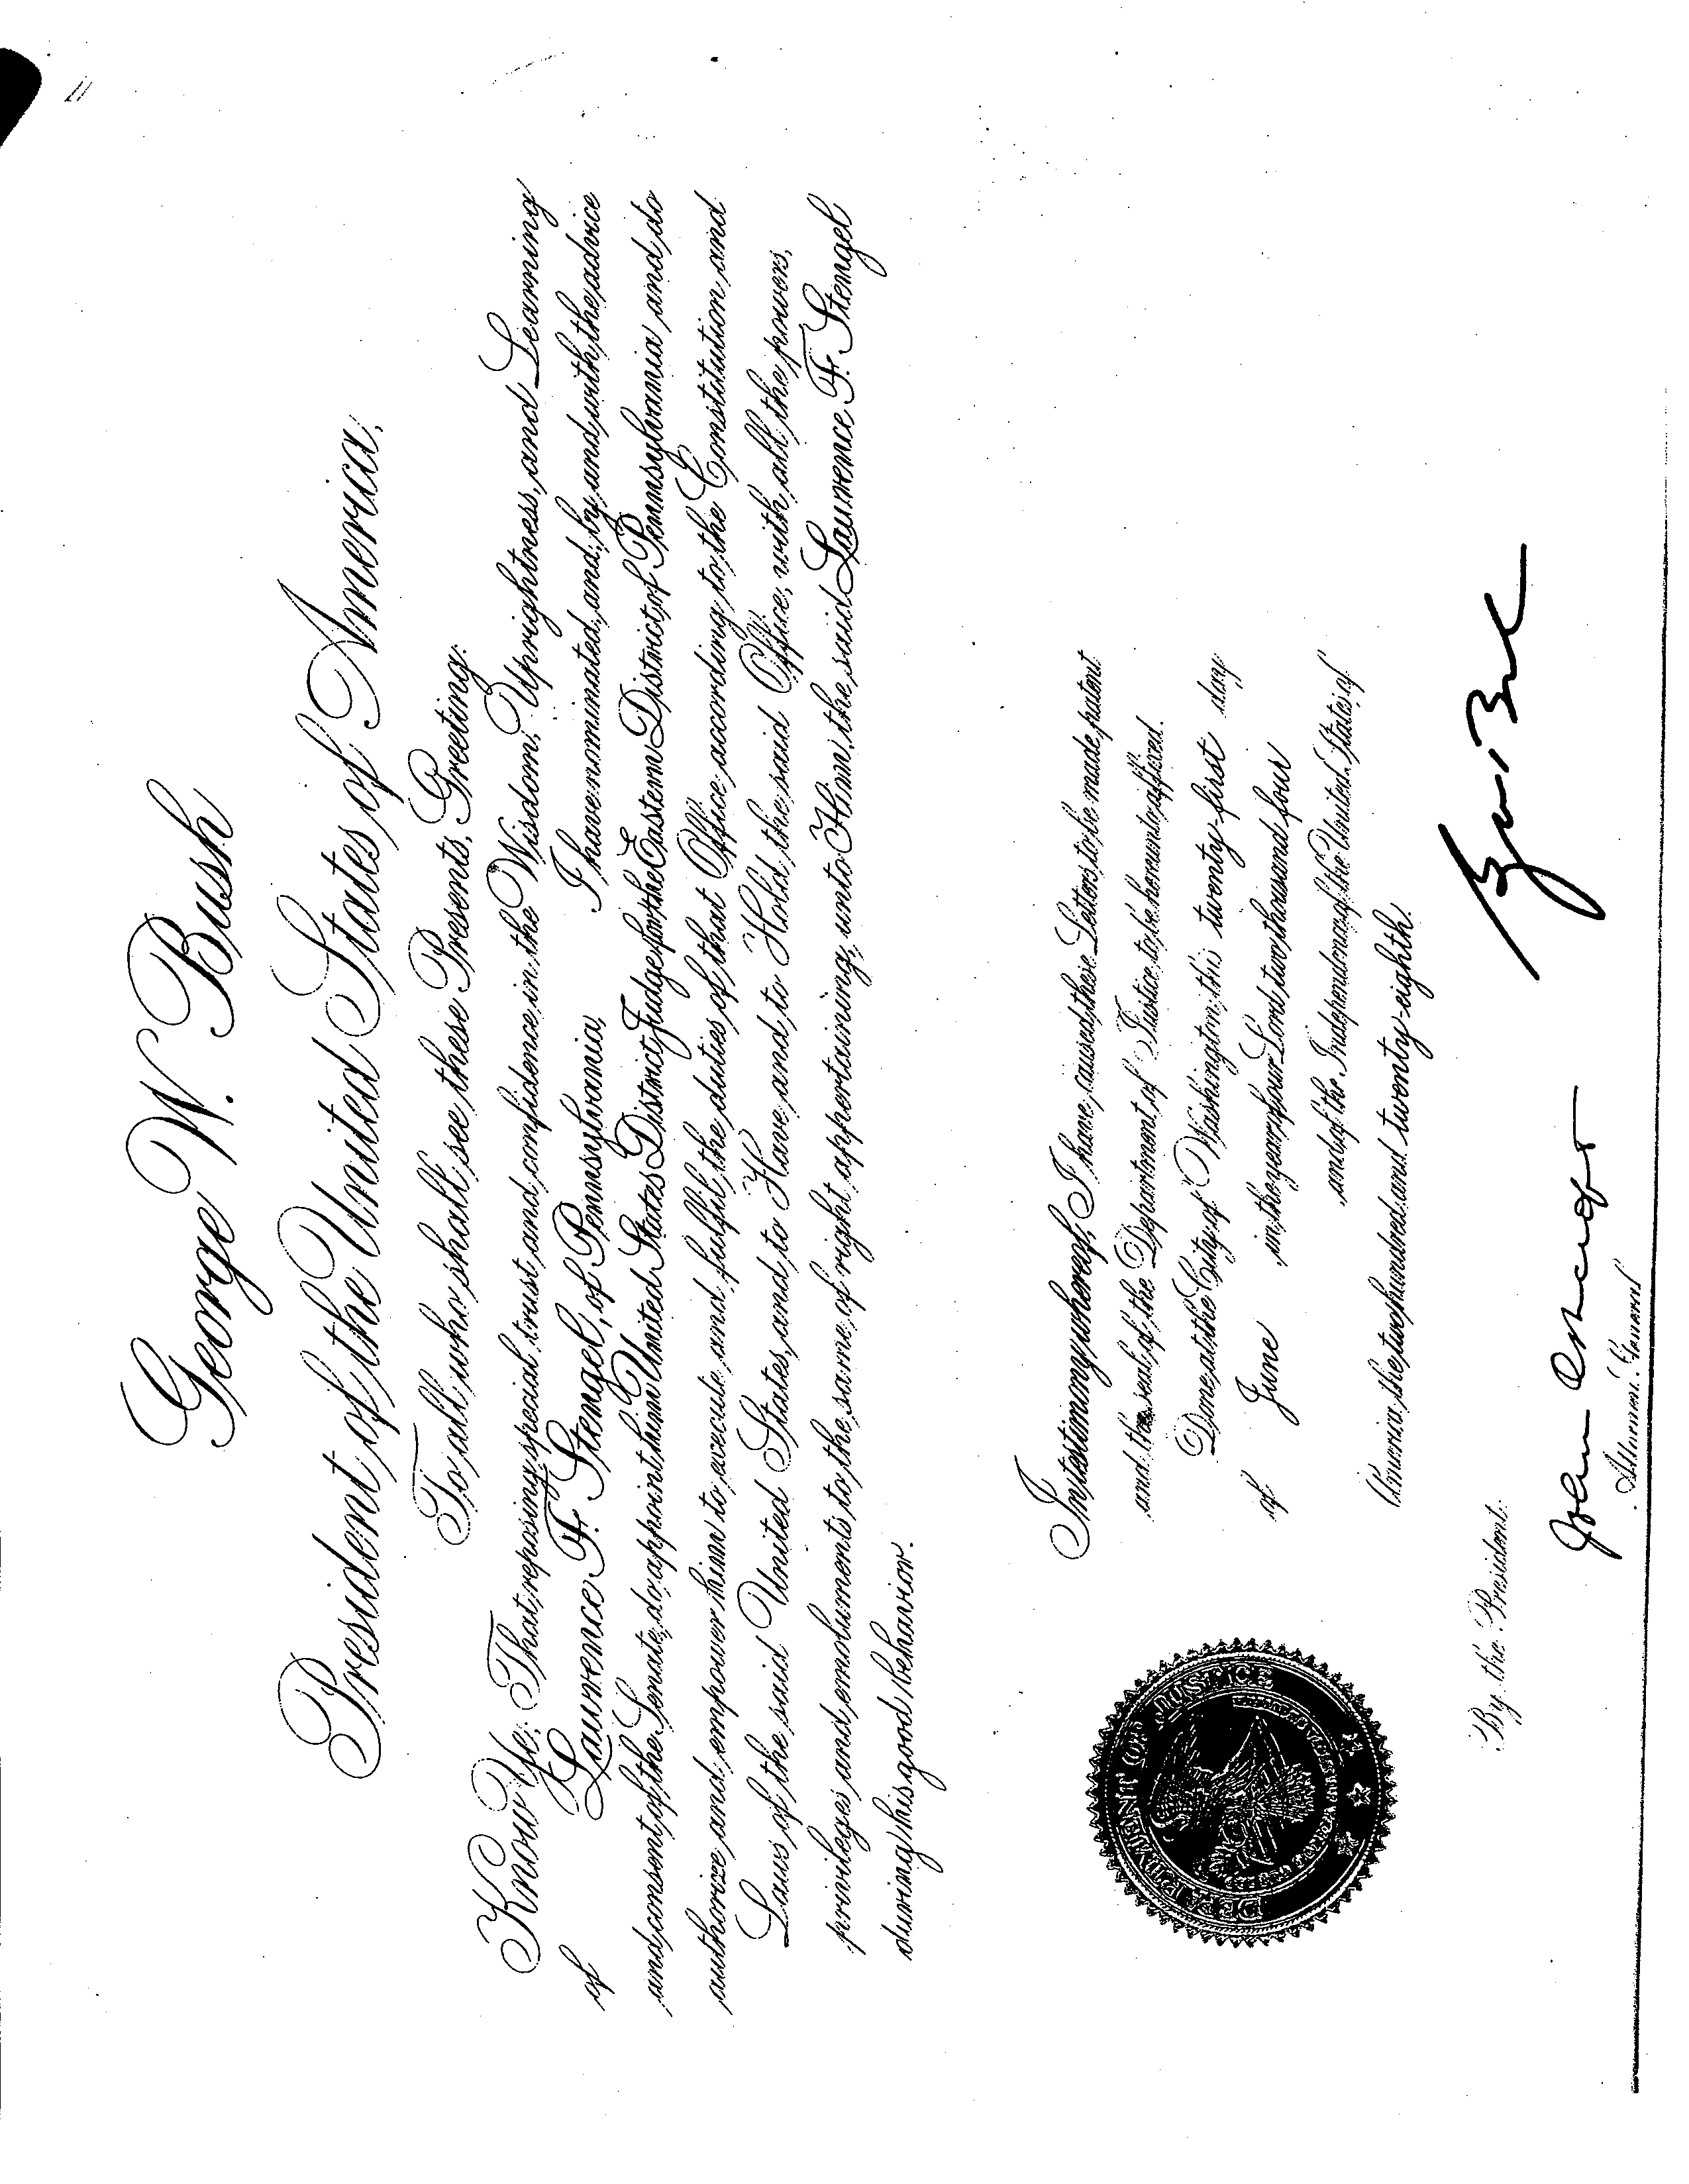 George W. Bush
President of the United States of America,
To all who shall see these Presents, Greeting:
Know Ye: That reposing special trust and confidence in the Wisdom, Uprightness, and Learning
of Lawrence F. Stengel, of Pennsylvania, I have nominated, and, by and with the advice
and consent of the Senate, do appoint him United States District Judge for the Eastern District of Pennsylvania and do
authorize and empower him to execute and fulfil the duties of that Office according to the Constitution and
Laws of the said United States, and to Have and to Hold the said Office, with all the powers,
privileges and emoluments to the same of right appertaining, unto Him, the said Lawrence F. Stengel
during his good behavior.
In testimony whereof, I have caused these Letters to be made patent
and the seal of the Department of Justice to be hereunto affixed.
Done at the City of Washington this twenty-first day
of June in the year of our Lord two thousand four
and of the Independence of the United States of
America the two hundred and twenty-eighth.
DEPARTMENT OF JUSTICE
By the President:
John Ashcroft
Attorney General